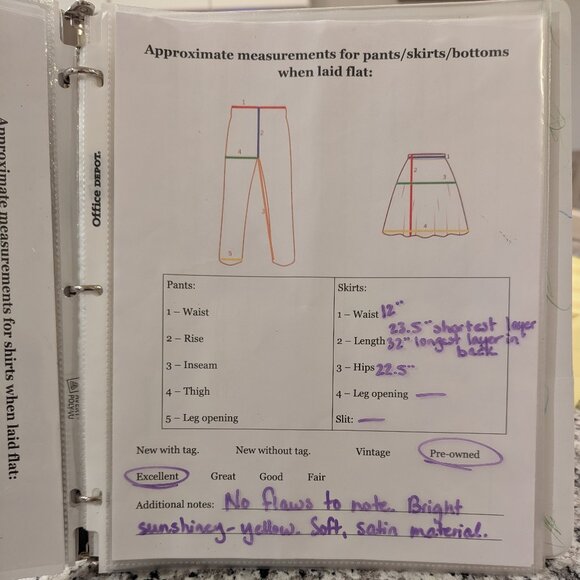 Approximate measurements for pants/skirts/bottoms
when laid flat:
1
2
4
3
5
1
2
3
4
Pants:
1 – Waist
2 – Rise
3 – Inseam
4 – Thigh
5 – Leg opening
Skirts:
1 – Waist 12"
23.5" shortest layer
2 – Length 32" longest layer in
back
3 – Hips 22.5"
4 – Leg opening —
Slit: —
New with tag. New without tag. Vintage Pre-owned
Excellent Great Good Fair
Additional notes: No flaws to note. Bright
sunshiney-yellow. Soft, satin material.
Office DEPOT.
Approximate measurements for shirts when laid flat: